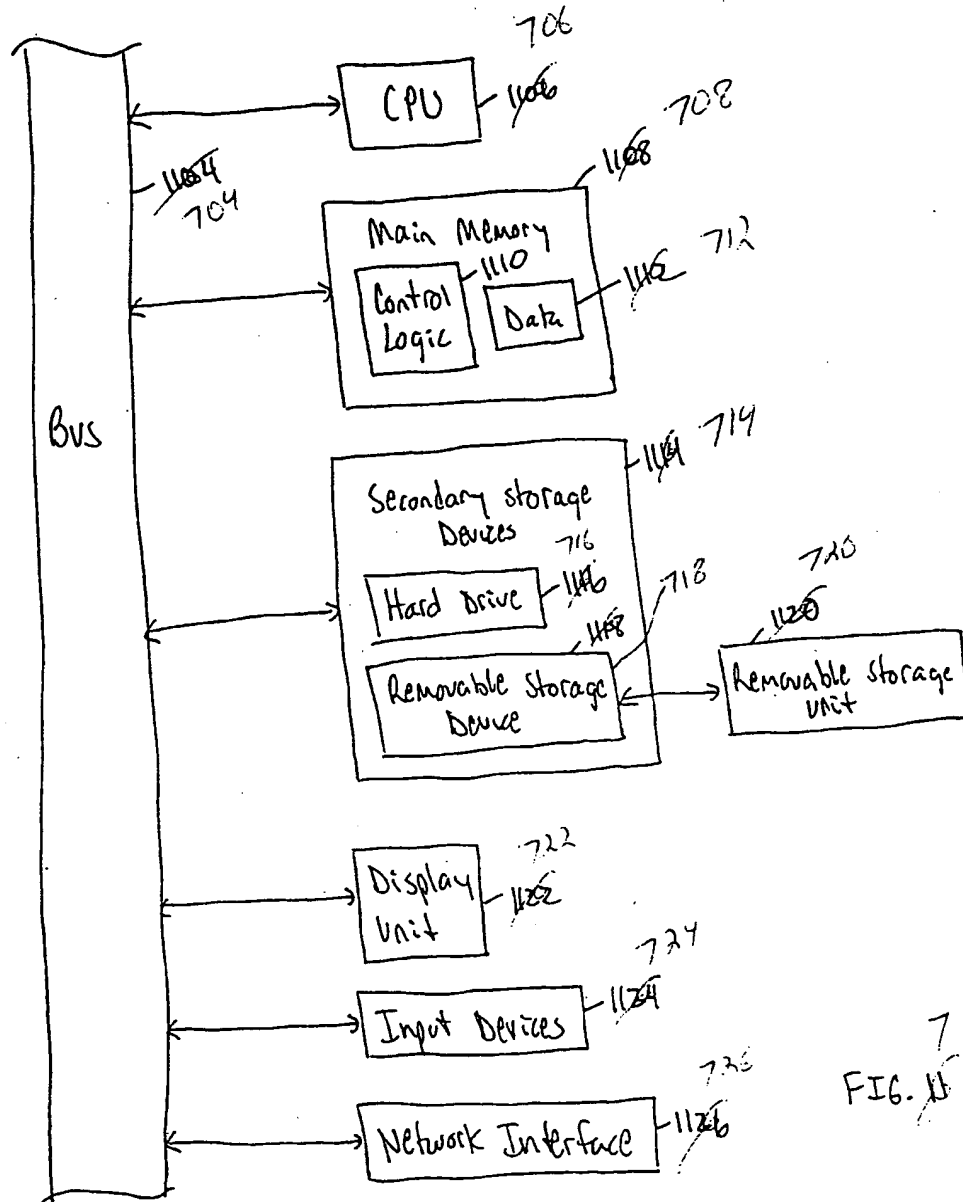 706
CPU
1106
1104
704
1108
708
Main Memory
1110
712
Control
Logic
Data
1112
Bus
1114
714
Secondary Storage
Devices
716
Hard Drive
1116
718
1118
Removable Storage
Device
720
1120
Removable Storage
Unit
722
Display
Unit
1122
724
Input Devices
1124
726
Network Interface
1126
7
FIG. 11